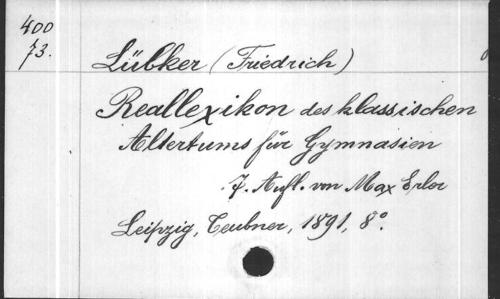 400
73.
Lübker (Friedrich)
Reallexikon des klassischen
Altertums für Gymnasien
7. Aufl. von Max Erler
Leipzig, Teubner, 1891, 8°.